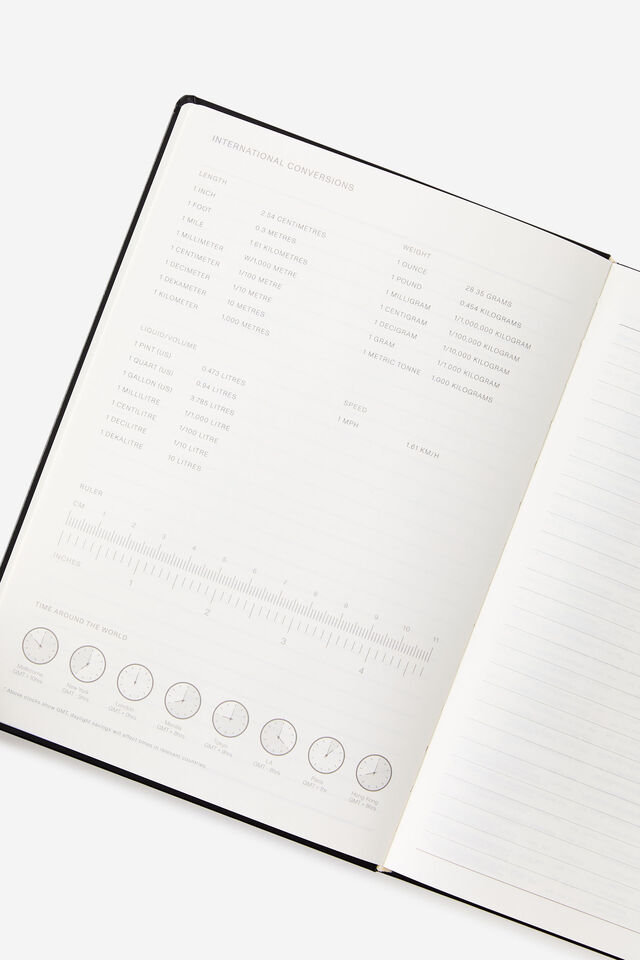 INTERNATIONAL CONVERSIONS
LENGTH
1 INCH 2.54 CENTIMETRES
1 FOOT 0.3 METRES
1 MILE 1.61 KILOMETRES
1 MILLIMETER W/1,000 METRE
1 CENTIMETER 1/100 METRE
1 DECIMETER 1/10 METRE
1 DEKAMETER 10 METRES
1 KILOMETER 1,000 METRES
WEIGHT
1 OUNCE 28.35 GRAMS
1 POUND 0.454 KILOGRAMS
1 MILLIGRAM 1/1,000,000 KILOGRAM
1 CENTIGRAM 1/100,000 KILOGRAM
1 DECIGRAM 1/10,000 KILOGRAM
1 GRAM 1/1,000 KILOGRAM
1 METRIC TONNE 1,000 KILOGRAMS
LIQUID/VOLUME
1 PINT (US) 0.473 LITRES
1 QUART (US) 0.94 LITRES
1 GALLON (US) 3.785 LITRES
1 MILLILITRE 1/1,000 LITRE
1 CENTILITRE 1/100 LITRE
1 DECILITRE 1/10 LITRE
1 DEKALITRE 10 LITRES
SPEED
1 MPH 1.61 KM/H
RULER
CM 1 2 3 4 5 6 7 8 9 10 11
INCHES 1 2 3 4
TIME AROUND THE WORLD
Melbourne
GMT + 10hrs
New York
GMT - 5hrs
London
GMT + 0hrs
Manila
GMT + 8hrs
Tokyo
GMT + 9hrs
LA
GMT - 8hrs
Paris
GMT + 1hr
Hong Kong
GMT + 8hrs
*Above clocks show GMT, daylight savings will effect times in relevant countries.